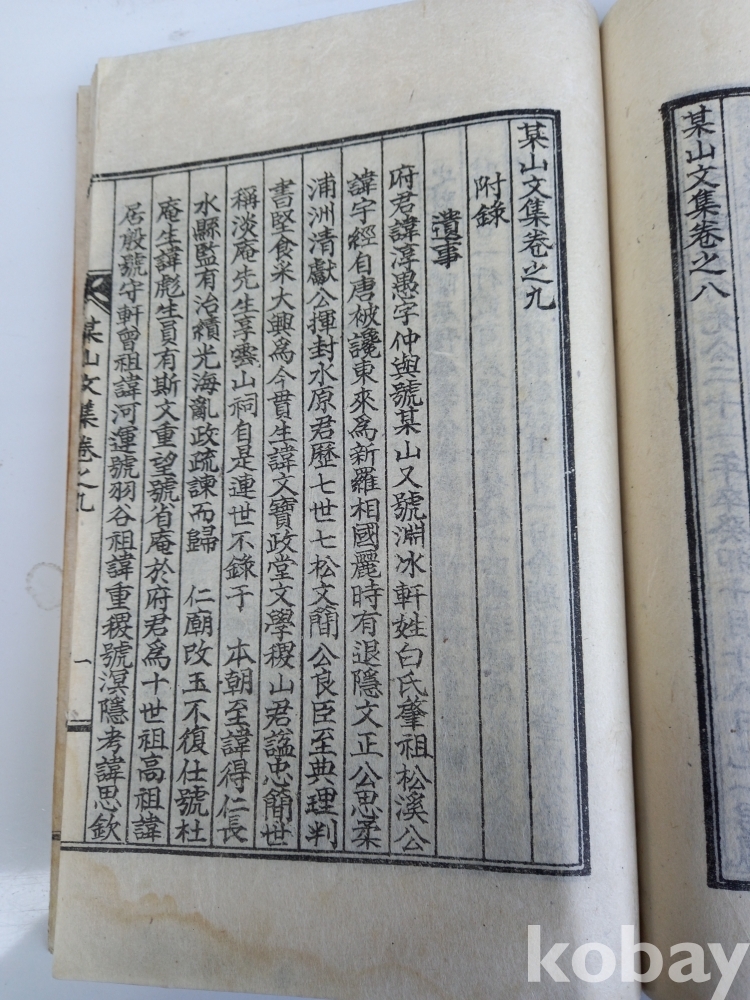 某山文集卷之八
某山文集卷之九
附錄
遺事
府君諱淳愚字仲與號某山又號淵冰軒姓白氏肇祖松溪公
諱宇經自唐被讒東來爲新羅相國麗時有退隱文正公思柔
浦洲清獻公揮封水原君歷七世七松文簡公良臣至典理判
書堅食采大興爲今貫生諱文寶政堂文學稷山君謚忠簡世
稱淡庵先生享雲山祠自是連世不錄于 本朝至諱得仁長
水縣監有治績光海亂政疏諫而歸 仁廟改玉不復仕號杜
庵生諱彪生員有斯文重望號省庵於府君爲十世祖高祖諱
居殷號守軒曾祖諱河運號羽谷祖諱重稷號溟隱考諱思欽
某山文集卷之九
一
kobay